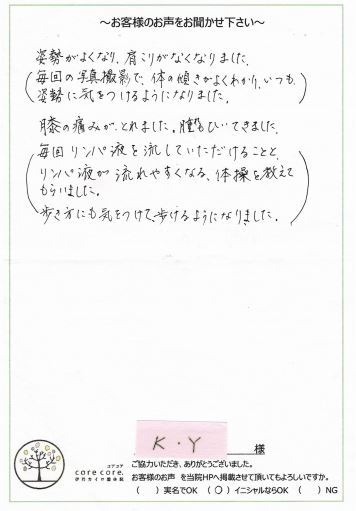 ～お客様のお声をお聞かせ下さい～
姿勢がよくなり、肩こりがなくなりました。
(毎回の写真撮影で、体の傾きがよくわかり、いつも、
姿勢に気をつけるようになりました。)
膝の痛みが、とれました。腫もひいてきました。
(毎回リンパ液を流していただけることと、
リンパ液が流れやすくなる、体操を教えて
もらいました。
歩き方にも気をつけて、歩けるようになりました。)
K・Y 様
コアコア
core core.
伊丹カイロ整体院
ご協力いただき、ありがとうございました。
お客様のお声 を当院HPへ掲載させて頂いてもよろしいですか。
( ) 実名でOK (○) イニシャルならOK ( ) NG